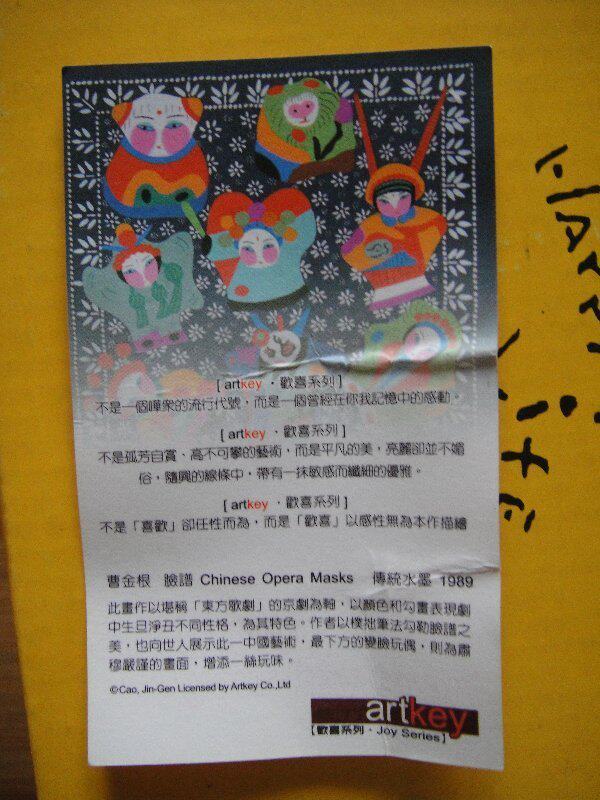 [ artkey ‧歡喜系列 ]
不是一個嘩眾的流行代號，而是一個曾經在你我記憶中的感動。
[ artkey ‧歡喜系列 ]
不是孤芳自賞、高不可攀的藝術，而是平凡的美，亮麗卻並不媚
俗，隨興的線條中，帶有一抹敏感而纖細的優雅。
[ artkey ‧歡喜系列 ]
不是「喜歡」卻任性而為，而是「歡喜」以感性無為本作描繪
曹金根 臉譜 Chinese Opera Masks 傳統水墨 1989
此畫作以堪稱「東方歌劇」的京劇為軸，以顏色和勾畫表現劇
中生旦淨丑不同性格，為其特色。作者以樸拙筆法勾勒臉譜之
美，也向世人展示此一中國藝術，最下方的變臉玩偶，則為肅
穆嚴謹的畫面，增添一絲玩味。
©Cao, Jin-Gen Licensed by Artkey Co.,Ltd
artkey
【歡喜系列‧Joy Series】